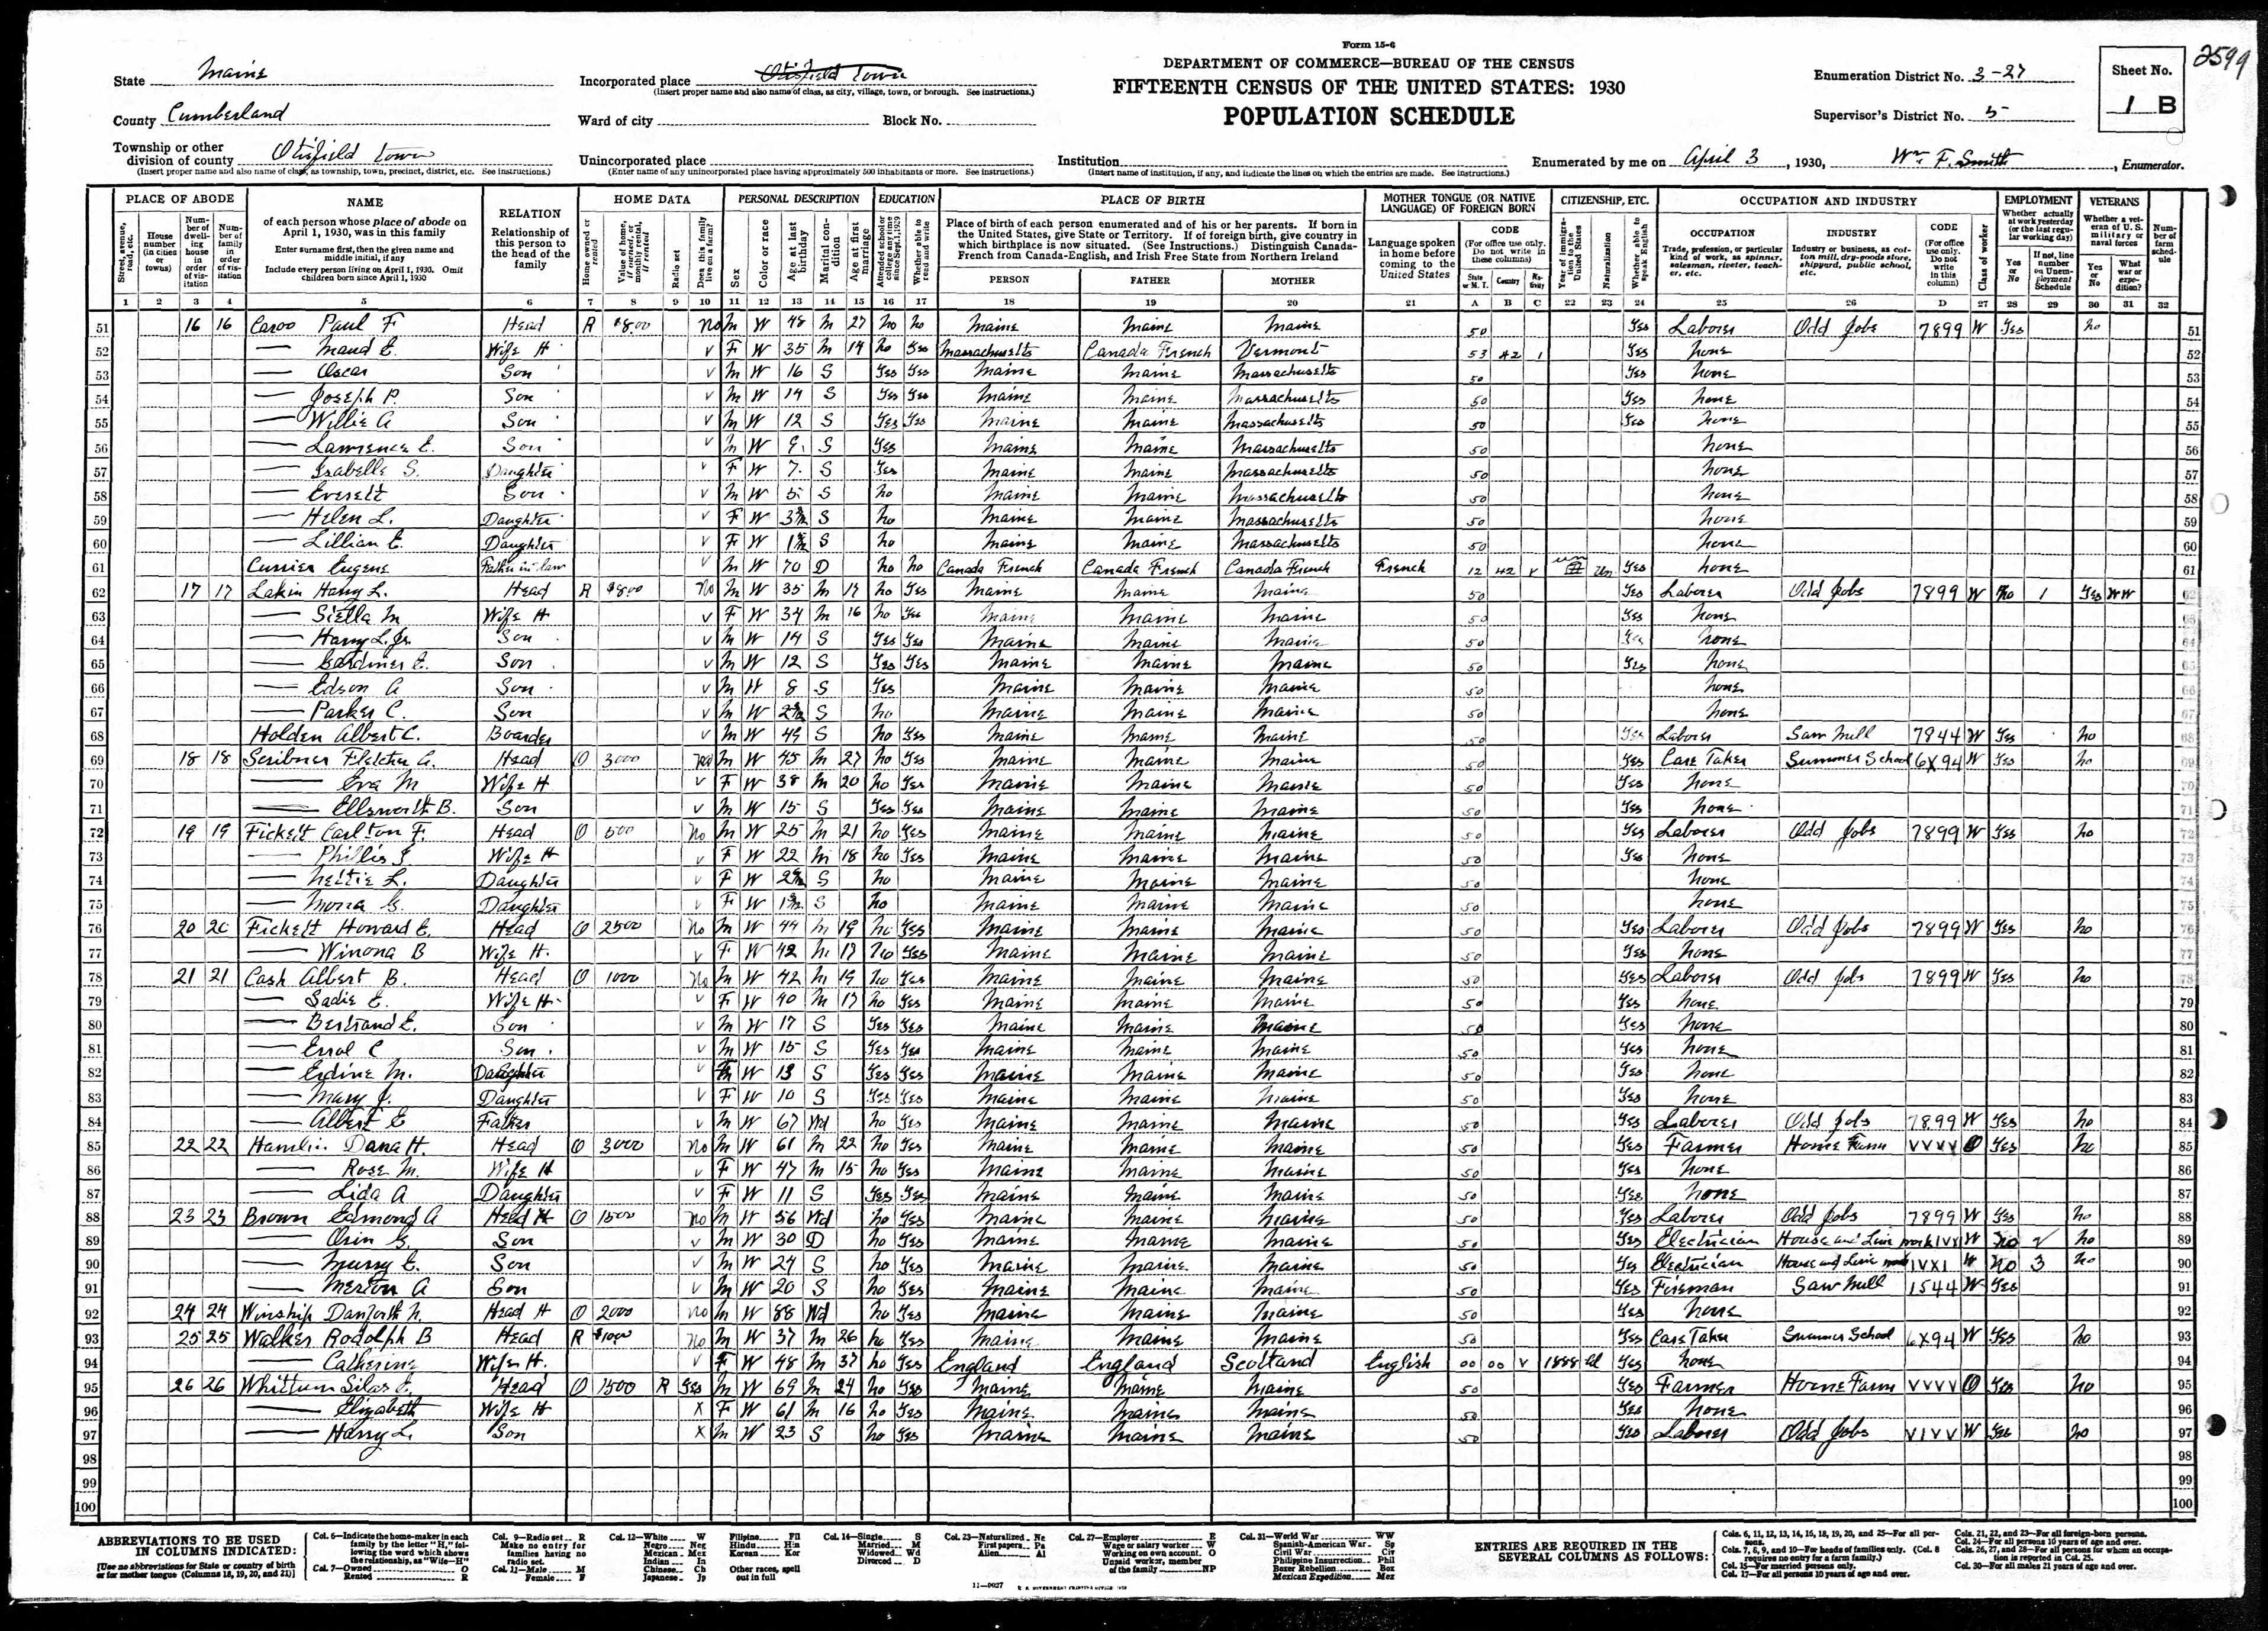 Form 15-6
2599
DEPARTMENT OF COMMERCE—BUREAU OF THE CENSUS
FIFTEENTH CENSUS OF THE UNITED STATES: 1930
POPULATION SCHEDULE
State Maine
Incorporated place Otisfield Town
(Insert proper name and also name of class, as city, village, town, or borough. See instructions.)
Enumeration District No. 3-27
Sheet No. 1 B
County Cumberland
Ward of city Block No.
Supervisor's District No. 5
Township or other division of county Otisfield Town
(Insert proper name and also name of class, as township, town, precinct, district, etc. See instructions.)
Unincorporated place
(Enter name of any unincorporated place having approximately 500 inhabitants or more. See instructions.)
Institution
(Insert name of institution, if any, and indicate the lines on which the entries are made. See instructions.)
Enumerated by me on April 3, 1930, Wm F. Smith, Enumerator.
PLACE OF ABODE NAME RELATION HOME DATA PERSONAL DESCRIPTION EDUCATION PLACE OF BIRTH MOTHER TONGUE (OR NATIVE LANGUAGE) OF FOREIGN BORN CITIZENSHIP, ETC. OCCUPATION AND INDUSTRY EMPLOYMENT VETERANS
1 2 3 4 5 6 7 8 9 10 11 12 13 14 15 16 17 18 19 20 21 A B C 22 23 24 25 26 D 27 28 29 30 31 32
51 16 16 Caroo Paul F Head R $8.00 No M W 48 M 27 no no Maine Maine Maine 50 Yes Laborer Odd Jobs 7899 W Yes no 51
52 — Maud E. Wife H V F W 35 M 19 no Yes Massachusetts Canada French Vermont 53 42 1 Yes none 52
53 — Oscar Son V M W 16 S Yes Yes Maine Maine Massachusetts 50 Yes none 53
54 — Joseph P. Son V M W 14 S Yes Yes Maine Maine Massachusetts 50 Yes none 54
55 — Willie A Son V M W 12 S Yes Yes Maine Maine Massachusetts 50 Yes none 55
56 — Lawrence E. Son V M W 9 S Yes Maine Maine Massachusetts 50 none 56
57 — Isabelle S. Daughter V F W 7 S Yes Maine Maine Massachusetts 50 none 57
58 — Everett Son V M W 5 S no Maine Maine Massachusetts 50 none 58
59 — Helen L. Daughter V F W S no Maine Maine Massachusetts 50 none 59
60 — Lillian E. Daughter V F W S no Maine Maine Massachusetts 50 none 60
61 Currier Eugene Father in law V M W 70 D no no Canada French Canada French Canada French French 12 42 V un Un Yes none 61
62 17 17 Lakin Harry L. Head R $8.00 No M W 35 M 17 no Yes Maine Maine Maine 50 Yes Laborer Odd Jobs 7899 W No 1 Yes WW 62
63 — Stella M Wife H V F W 34 M 16 no Yes Maine Maine Maine 50 Yes none 63
64 — Harry L. Jr. Son V M W 14 S Yes Yes Maine Maine Maine 50 Yes none 64
65 — Gardiner E. Son V M W 12 S Yes Yes Maine Maine Maine 50 Yes none 65
66 — Edson A Son V M W 8 S Yes Maine Maine Maine 50 none 66
67 — Parker C. Son V M W S no Maine Maine Maine 50 none 67
68 Holden Albert C. Boarder V M W 49 S no Yes Maine Maine Maine 50 Yes Laborer Saw Mill 7844 W Yes no 68
69 18 18 Scribner Fletcher A. Head O 3000 No M W 45 M 27 no Yes Maine Maine Maine 50 Yes Care Taker Summer School 6X94 W Yes no 69
70 — Eva M Wife H V F W 38 M 20 no Yes Maine Maine Maine 50 Yes none 70
71 — Ellsworth B. Son V M W 15 S Yes Yes Maine Maine Maine 50 Yes none 71
72 19 19 Fickett Carlton F. Head O 500 No M W 25 M 21 no Yes Maine Maine Maine 50 Yes Laborer Odd Jobs 7899 W Yes no 72
73 — Phillis J. Wife H V F W 22 M 18 no Yes Maine Maine Maine 50 Yes none 73
74 — Nettie L. Daughter V F W S no Maine Maine Maine 50 none 74
75 — Norra G. Daughter V F W S no Maine Maine Maine 50 none 75
76 20 20 Fickett Howard E. Head O 2500 No M W 44 M 19 no Yes Maine Maine Maine 50 Yes Laborer Odd Jobs 7899 W Yes no 76
77 — Winona B Wife H. V F W 42 M 17 no Yes Maine Maine Maine 50 Yes none 77
78 21 21 Cash Albert B. Head O 1000 No M W 42 M 19 no Yes Maine Maine Maine 50 Yes Laborer Odd Jobs 7899 W Yes no 78
79 — Sadie E. Wife H V F W 40 M 17 no Yes Maine Maine Maine 50 Yes none 79
80 — Bertrand E. Son V M W 17 S Yes Yes Maine Maine Maine 50 Yes none 80
81 — Errol C Son V M W 15 S Yes Yes Maine Maine Maine 50 Yes none 81
82 — Erdine M. Daughter V F W 13 S Yes Yes Maine Maine Maine 50 Yes none 82
83 — Mary J. Daughter V F W 10 S Yes Yes Maine Maine Maine 50 Yes none 83
84 — Albert E Father V M W 67 Wd no Yes Maine Maine Maine 50 Yes Laborer Odd Jobs 7899 W Yes no 84
85 22 22 Hamlin Dana H. Head O 3000 No M W 61 M 22 no Yes Maine Maine Maine 50 Yes Farmer Home Farm VVVV O Yes no 85
86 — Rose M. Wife H V F W 47 M 15 no Yes Maine Maine Maine 50 Yes none 86
87 — Lida A Daughter V F W 11 S Yes Yes Maine Maine Maine 50 Yes none 87
88 23 23 Brown Edmond A Head H O 1500 No M W 56 Wd no Yes Maine Maine Maine 50 Yes Laborer Odd Jobs 7899 W Yes no 88
89 — Orin G. Son V M W 30 D no Yes Maine Maine Maine 50 Yes Electrician House and Line work 1VX1 W no 2 no 89
90 — Murry E. Son V M W 24 S no Yes Maine Maine Maine 50 Yes Electrician House and Line work 1VX1 W no 3 no 90
91 — Merton A Son V M W 20 S no Yes Maine Maine Maine 50 Yes Fireman Saw Mill 1544 W Yes 91
92 24 24 Winship Danforth N. Head H O 2000 No M W 88 Wd no Yes Maine Maine Maine 50 Yes none 92
93 25 25 Walker Rodolph B Head R $10.00 No M W 37 M 26 no Yes Maine Maine Maine 50 Yes Care Taker Summer School 6X94 W Yes no 93
94 — Catherine Wife H. V F W 48 M 37 no Yes England England Scotland English 00 00 V 1888 Yes none 94
95 26 26 Whittum Silas E. Head O 1500 R Yes M W 69 M 24 no Yes Maine Maine Maine 50 Yes Farmer Home Farm VVVV O Yes no 95
96 — Elizabeth Wife H X F W 61 M 16 no Yes Maine Maine Maine 50 Yes none 96
97 — Harry L. Son X M W 23 S no Yes Maine Maine Maine 50 Yes Laborer Odd Jobs V1VV W Yes no 97
98 98
99 99
100 100
ABBREVIATIONS TO BE USED IN COLUMNS INDICATED:
[Use no abbreviations for State or country of birth or for mother tongue (Columns 18, 19, 20, and 21)]
Col. 6—Indicate the home-maker in each family by the letter "H," following the word which shows the relationship, as "Wife—H"
Col. 7—Owned O Rented R
Col. 9—Radio set R Make no entry for families having no radio set.
Col. 11—Male M Female F
Col. 12—White W Negro Neg Mexican Mex Indian In Chinese Ch Japanese Jp
Filipino Fil Hindu Hin Korean Kor Other races, spell out in full
Col. 14—Single S Married M Widowed Wd Divorced D
Col. 23—Naturalized Na First papers Pa Alien Al
Col. 27—Employer E Wage or salary worker W Working on own account O Unpaid worker, member of the family NP
Col. 31—World War WW Spanish-American War Sp Civil War Civ Philippine Insurrection Phil Boxer Rebellion Box Mexican Expedition Mex
ENTRIES ARE REQUIRED IN THE SEVERAL COLUMNS AS FOLLOWS:
Cols. 6, 11, 12, 13, 14, 16, 18, 19, 20, and 25—For all persons.
Cols. 7, 8, 9, and 10—For heads of families only. (Col. 8 requires no entry for a farm family.)
Col. 15—For married persons only.
Col. 17—For all persons 10 years of age and over.
Cols. 21, 22, and 23—For all foreign-born persons.
Col. 24—For all persons 10 years of age and over.
Cols. 26, 27, and 28—For all persons for whom an occupation is reported in Col. 25.
Col. 30—For all males 21 years of age and over.
11—9027